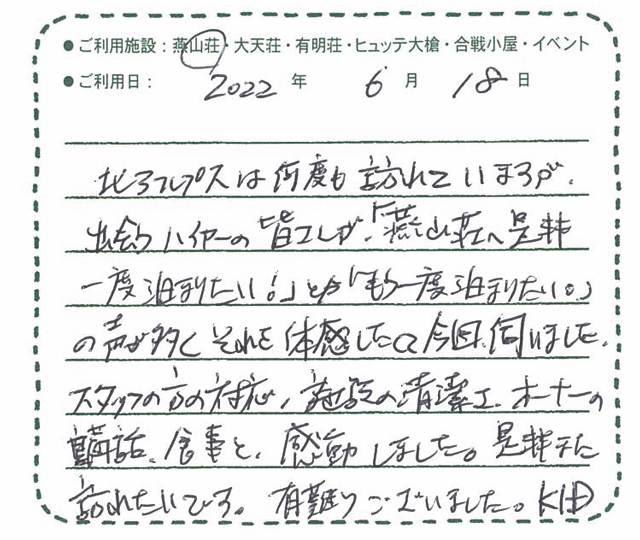 ●ご利用施設：燕山荘・大天荘・有明荘・ヒュッテ大槍・合戦小屋・イベント
●ご利用日： 2022 年 6 月 18 日
北アルプスは何度も訪れていますが、
出会うハイヤーの皆さんが、「燕山荘へ是非
一度泊まりたい！」とか「もう一度泊まりたい。」
の声が多く それを体感したく今回、伺いました。
スタッフの方の対応、施設の清潔さ、オーナーの
講話、食事と、感動しました。是非また
訪れたいです。有難うございました。